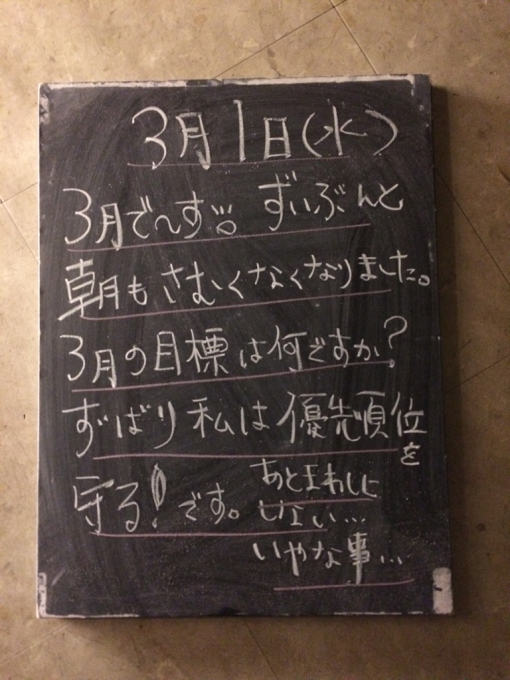 3月1日(水)
3月で〜す。ずいぶんと
朝もさむくなくなりました。
3月の目標は何ですか?
ずばり私は優先順位を
守る!です。
あとまわしに
しない…
いやな事…